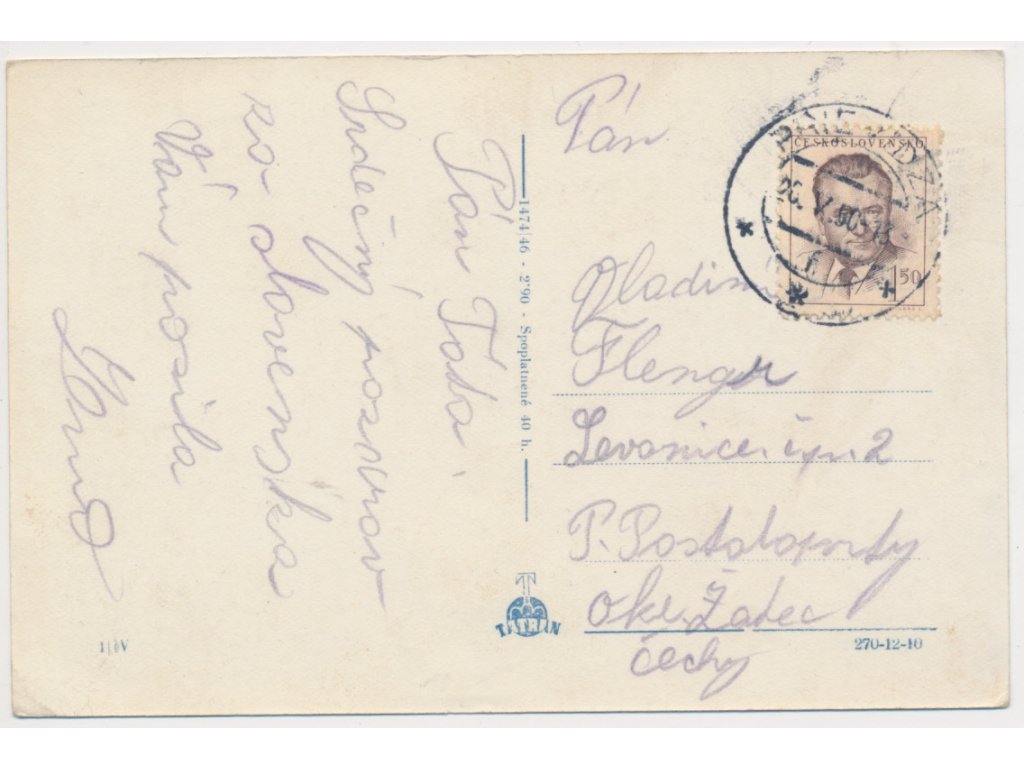 Pán Toda.
Srdečný pozdrav
zo slovenska
Vám posila
1474/46 - 2'90 - Spoplatnené 40 h.
TATRAN
1|IV
Pán
Vladimír
Flenger
Levonice čp. 2
P. Postoloprty
Okr. Žatec
Čechy
270-12-10
ČESKOSLOVENSKO
1 50
PRIEVIDZA
26. V. 50 - 13